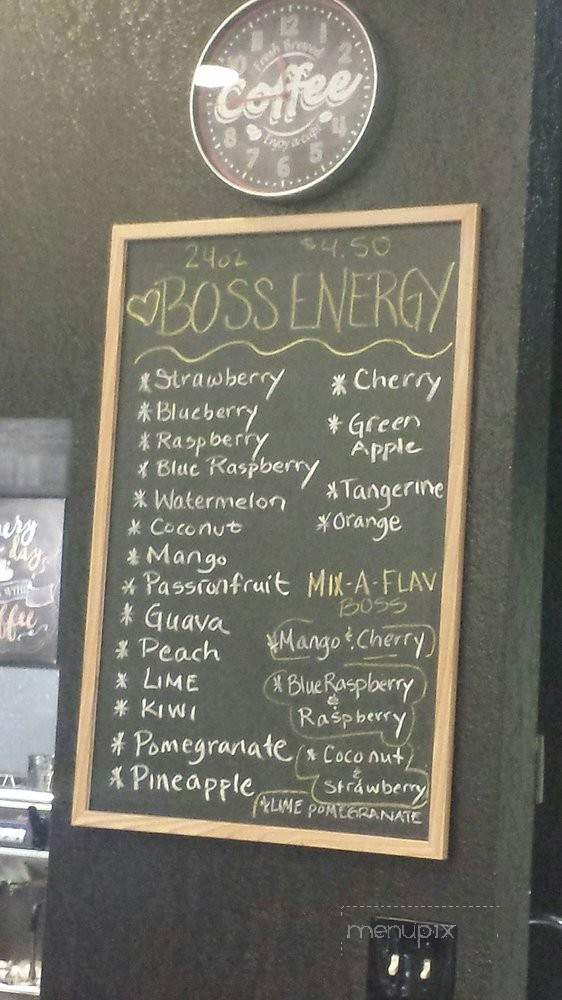 12
1
2
Fresh Brewed
Coffee
Enjoy a cup!
4
5
6
7
8
24oz $4.50
BOSS ENERGY
* Strawberry
* Blueberry
* Raspberry
* Blue Raspberry
* Watermelon
* Coconut
* Mango
* Passionfruit
* Guava
* Peach
* LIME
* KIWI
* Pomegranate
* Pineapple
* Cherry
* Green
Apple
* Tangerine
* Orange
MIX-A-FLAV
BOSS
* Mango & Cherry
* Blue Raspberry
&
Raspberry
* Coconut
&
Strawberry
* LIME POMEGRANATE
days
menupix